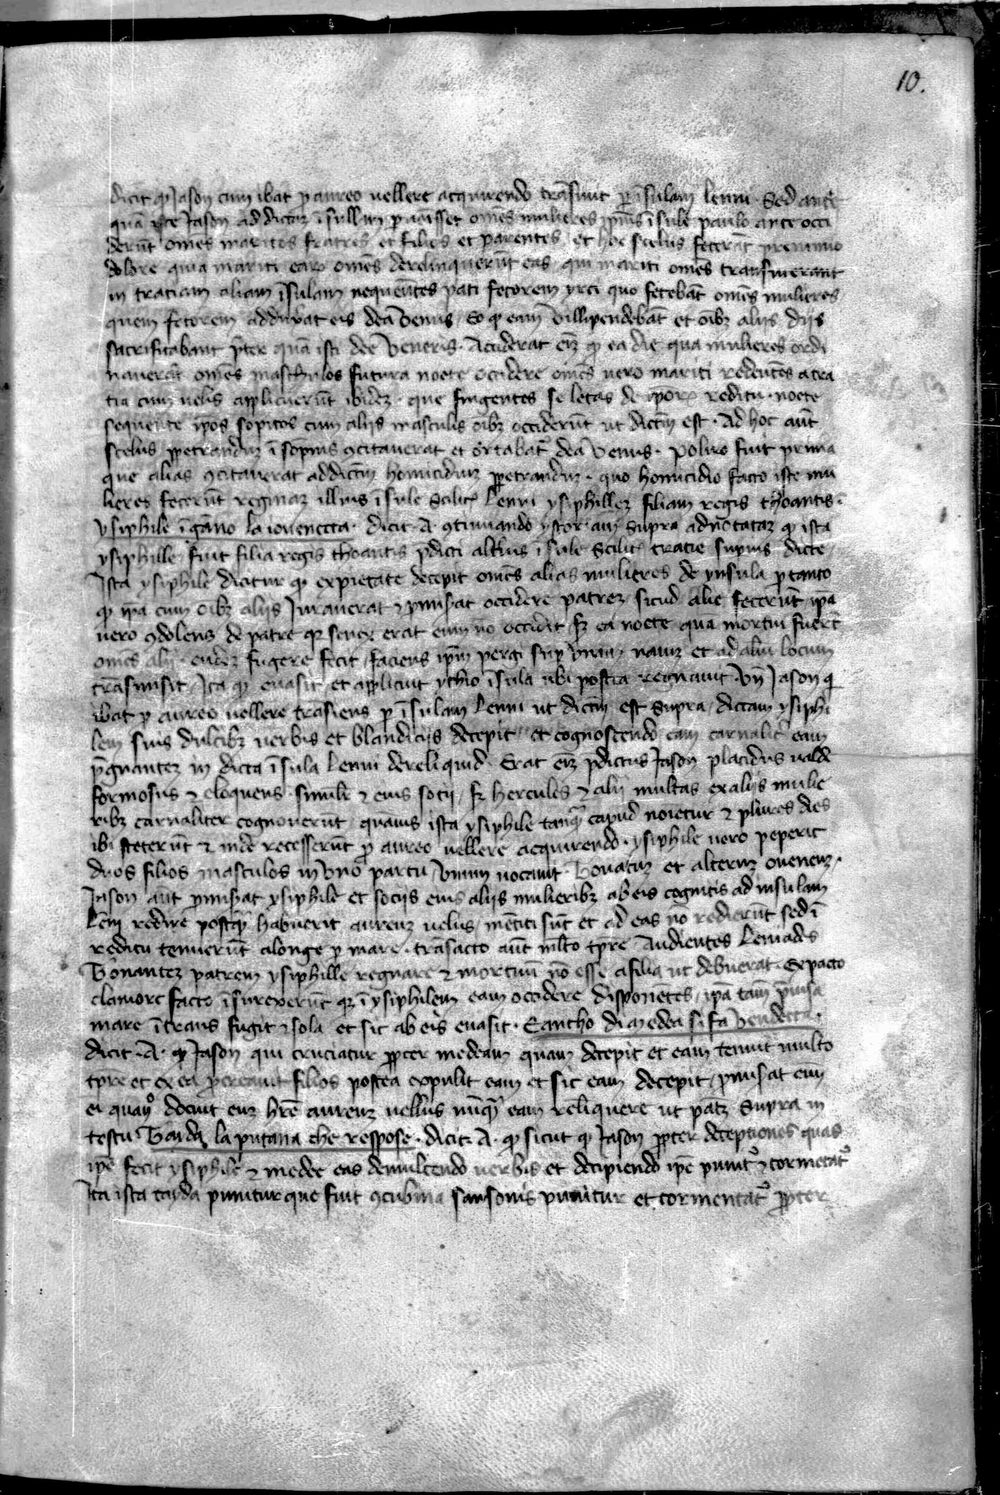 10.
dicit ꝙ Jason cum ibat ꝓ aureo uellere acquirendo trāsiuit ꝑ īsulam lenni · Sed ante
quā iste Jason ad dictaȝ īsullam ꝑuenisset omēs mulieres ipius īsule paulo ante occi
derūt omēs maritos fratres et filios et parentes et hoc scelus fecerāt pre nimio
dolore quia mariti earȝ omēs derelinquerūt eas · qui mariti omēs transiuerant
in traciam aliam īsulam nequentes pati fetorem yrci quo fetebāt omēs mulieres
quem fetorem addurat eis dea Venus · Eo ꝙ eam Villipendebāt et oībȝ aliis diis
sacrificabant p̄ter quā isti dee Veneris · Acciderat eīȝ ꝙ ea die qua mulieres ordi
nauerūt omēs masculos futura nocte occidere omēs uero mariti redeūtes a tra
tia cum uelis applicuerūt ibideȝ · que fingentes se letas de ip̄oꝝ reditu · nocte
sequente ip̄os sopitos cum aliis masculis oībȝ occiderūt ut dictm̄ est · Ad hoc aūt
scelus ꝑpetrandūȝ ī sōpnis ꝯcitauerat et ortabat᷒ dea Venus · polixo fuit prima
que alias ꝯcitauerat ad dictm̄ homicidiuȝ ꝑpetrandūȝ · quo homicidio facto iste mu
lieres fecerūt reginaȝ illius īsule scilic᷒ Lenni ysiphilleȝ filiam regis thoantis ·
ysiphile īganno la iouenecta · dicit · A · ꝯtinuando ystoriam supra adnotataȝ ꝙ ista
ysiphille fuit filia regis thoantis p̄dicti alt᷒ius īsule scilic᷒ tratie supius dicte ·
Ista ysiphile dicitur ꝙ ex pietate decepit omēs alias mulieres de ynsula ꝑ tanto
ꝙ ip̄a cum oībȝ aliis Jurauerat ⁊ ꝓmisat occidere patreȝ · sicud alie fecerūt ipa
uero ꝯdolens de patre ꝙ seneȝ erat eum nō occidit sȝ ea nocte qua mortui fuerūt
omēs alii · eundeȝ fugere fecit · faciens ip̄m pergi sup̄ Vnam nauiȝ et ad aliū locum
trāsmisit · Ita ꝙ euasit et applicuit ythio īsula ubi postea regnauit · Vn̄ Jason q̄
ibat ꝓ aureo uellere trāsiens ꝑ īsulam Lenni ut dictm̄ est supra · dictam ysiphi
lem suis dulcibȝ uerbis et blandiciis decepit · et cognoscendo eam carnalit᷒ eam
p̄gnanteȝ in dicta īsula Lenni dereliquid · Erat eīȝ p̄dictus Jason placidus ualde
formosus ⁊ eloquens · simile ⁊ eius socii · sȝ hercules ⁊ alii multas ex aliis mulie
ribȝ carnaliter cognouerūt · quamuis ista ysiphile tanꝙ capud noietur ⁊ plures dies
ibi steterūt ⁊ inde recesserūt ꝓ aureo uellere acquirendo · ysiphile uero peperit
duos filios masculos in Vno partu · Vnum uocauit Thouatuȝ et alterȝ oueneuȝ ·
Jason aūt ꝓmisat ysiphile et sociis eius aliis mulieribȝ ab eis cognitis ad insulam
Lēni redire postꝙ habuerit aureuȝ uelus · mētiti sūt et ad eas nō redierūt sed ī
reditu tenuerūt a longe ꝑ mare · trāsacto aūt mlto tp̄re Audientes Leniades
Thonanteȝ patrem ysiphille regnare ⁊ mortuum nō esse a filia ut debuerat · Ex pacto
clamore facto īsurexerūt ī ysiphilem eam occidere disponētes · ip̄a tam̄
mare ītrans fugit ⁊ sola et sic ab eis euasit · E ancho di medea si fa Vendetta ·
dicit · A · ꝙ Jason qui cruciatur ꝓpter medeam quam decepit et eam tenuit multo
tp̄re et ex ea ꝓcreauit filios postea expulit eam et sic eam decepit · ꝓmisat eniȝ
ei quaꝫ docuit euȝ h̄re aureuȝ uellus nūꝙ eam reliquere ut patȝ supra in
testu Thayda la putana che respose · dicit · A · ꝙ sicut ꝙ Jason ꝓpter deceptiones quas
ipē fecit ysiphile ⁊ medee eas demulcendo uerbis et decipiendo ipē punit᷒ ⁊ tormētat᷒
Ita ista tayda punitur que fuit ꝯcubina sansonis punitur et tormentat᷒ ꝓpter